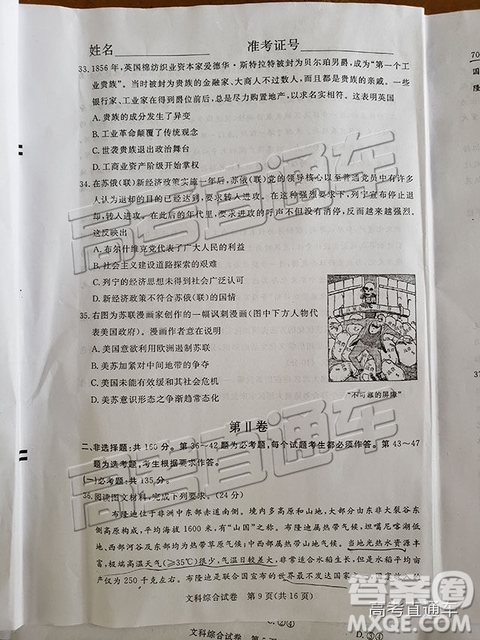 姓名 准考证号
33. 1856年，英国棉纺织业资本家爱德华·斯特拉特被封为贝尔珀男爵，成为“第一个工
业贵族”。当时被封为贵族的金融家、大商人不过数人，而且都是贵族的亲戚。一些
银行家、工业家在得到爵位前后，总是尽力购置地产，以求名实相符。这表明英国
A. 贵族的成分发生了异变
B. 工业革命颠覆了传统观念
C. 世袭贵族退出政治舞台
D. 工商业资产阶级开始掌权
34. 在苏俄(联)新经济政策实施一年后，苏俄(联)党的领导核心以至普通党员中有许多
人认为退却的目的已经达到，要求转入进攻。在这种强烈要求下，列宁宣布停止退
却，转入进攻。在此后的年代里，要求进攻的呼声不但没有消失，反而越来越强烈。
这反映出
A. 布尔什维克党代表了广大人民的利益
B. 社会主义建设道路探索的艰难
C. 列宁的经济思想未得到社会广泛认可
D. 新经济政策不符合苏俄(联)的国情
35. 右图为苏联漫画家创作的一幅讽刺漫画(图中下方人物代
表美国政府)。漫画作者意在说明
A. 美国意欲利用欧洲遏制苏联
B. 美苏加紧对中间地带的争夺
C. 美国未能有效缓和其社会危机
D. 美苏意识形态之争趋向常态化
第Ⅱ卷
二、非选择题：共160分。第36~42题为必考题，每个试题考生都必须作答。第43~47
题为选考题，考生根据要求作答。
(一)必考题：共135分。
36. 阅读图文材料，完成下列要求。(24分)
布隆迪位于非洲中东部赤道南侧。境内多高原和山地，大部分由东非大裂谷东
侧高原构成，平均海拔1600米，有“山国”之称。布隆迪属热带草原
地，西部河谷及东部为热带草原气候；中西部属热带山地气候。当地光热水资源丰
文科综合试卷 第9页(共16页)
答案圈
高考直通车
高考直通车